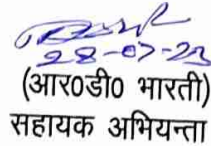 28-07-23
(आर0डी0 भारती)
सहायक अभियन्ता